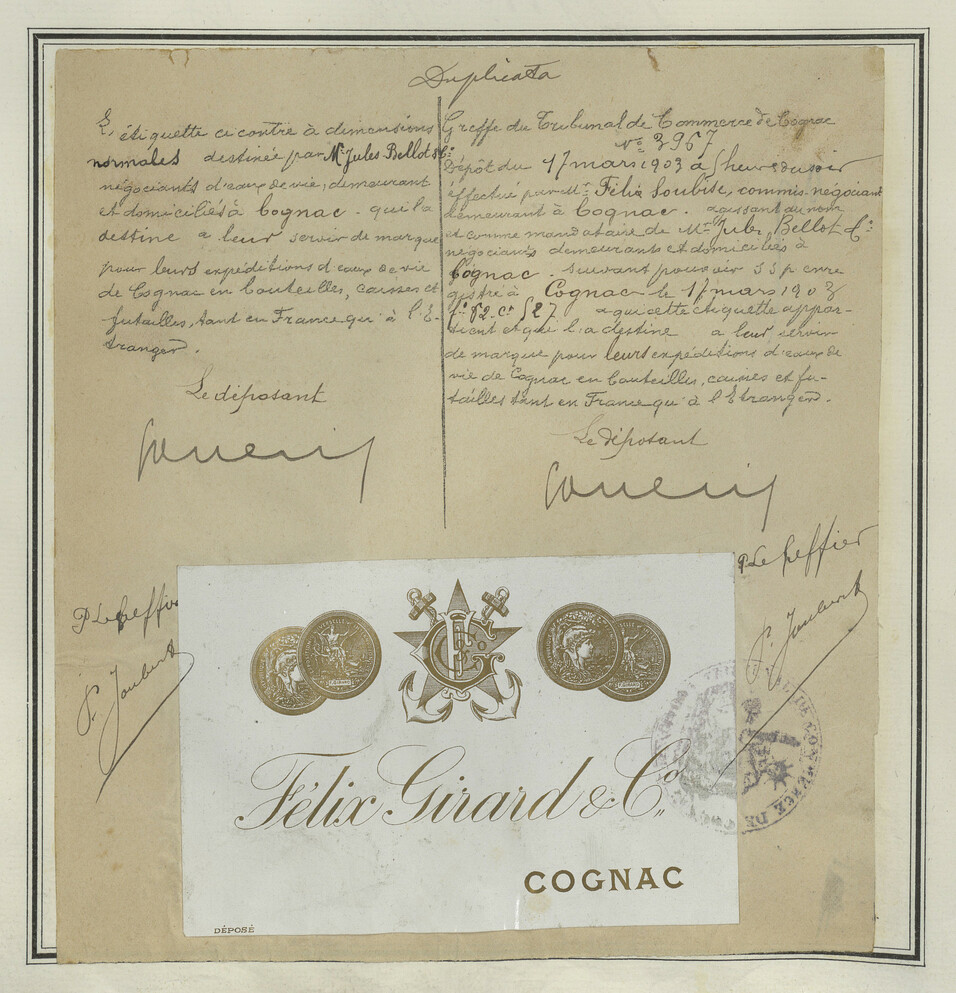 Duplicata
L'étiquette ci contre à dimensions
normales destinée par Mr. Jules Bellot & Cie
négociants d'eaux de vie, demeurant
et domiciliés à Cognac. qui la
destine a leur servir de marque
pour leurs expéditions d'eaux de vie
de Cognac en bouteilles, caisses et
futailles, tant en France qu'à l'E-
tranger.
Le déposant
Greffe du Tribunal de Commerce de Cognac
No. 3967
Dépôt du 17 mars 1903 à 5 heures du soir
effectué par Mr. Félix Soubise, commis-négociant
demeurant à Cognac. agissant au nom
et comme mandataire de Mr. Jules Bellot & Cie
négociants demeurants et domiciliés à
Cognac. Suivant pouvoir SSp enre
gistré à Cognac le 17 mars 1903
fo. 82. Co. 527 a qui cette étiquette appar-
tient et qui l'a destine a leur servir
de marque pour leurs expéditions d'eaux de
vie de Cognac en bouteilles, caisses et fu-
tailles tant en France qu'à l'Etranger.
Le déposant
P. Le Greffier
P. Le Greffier
Félix Girard & Co.
COGNAC
DÉPOSÉ